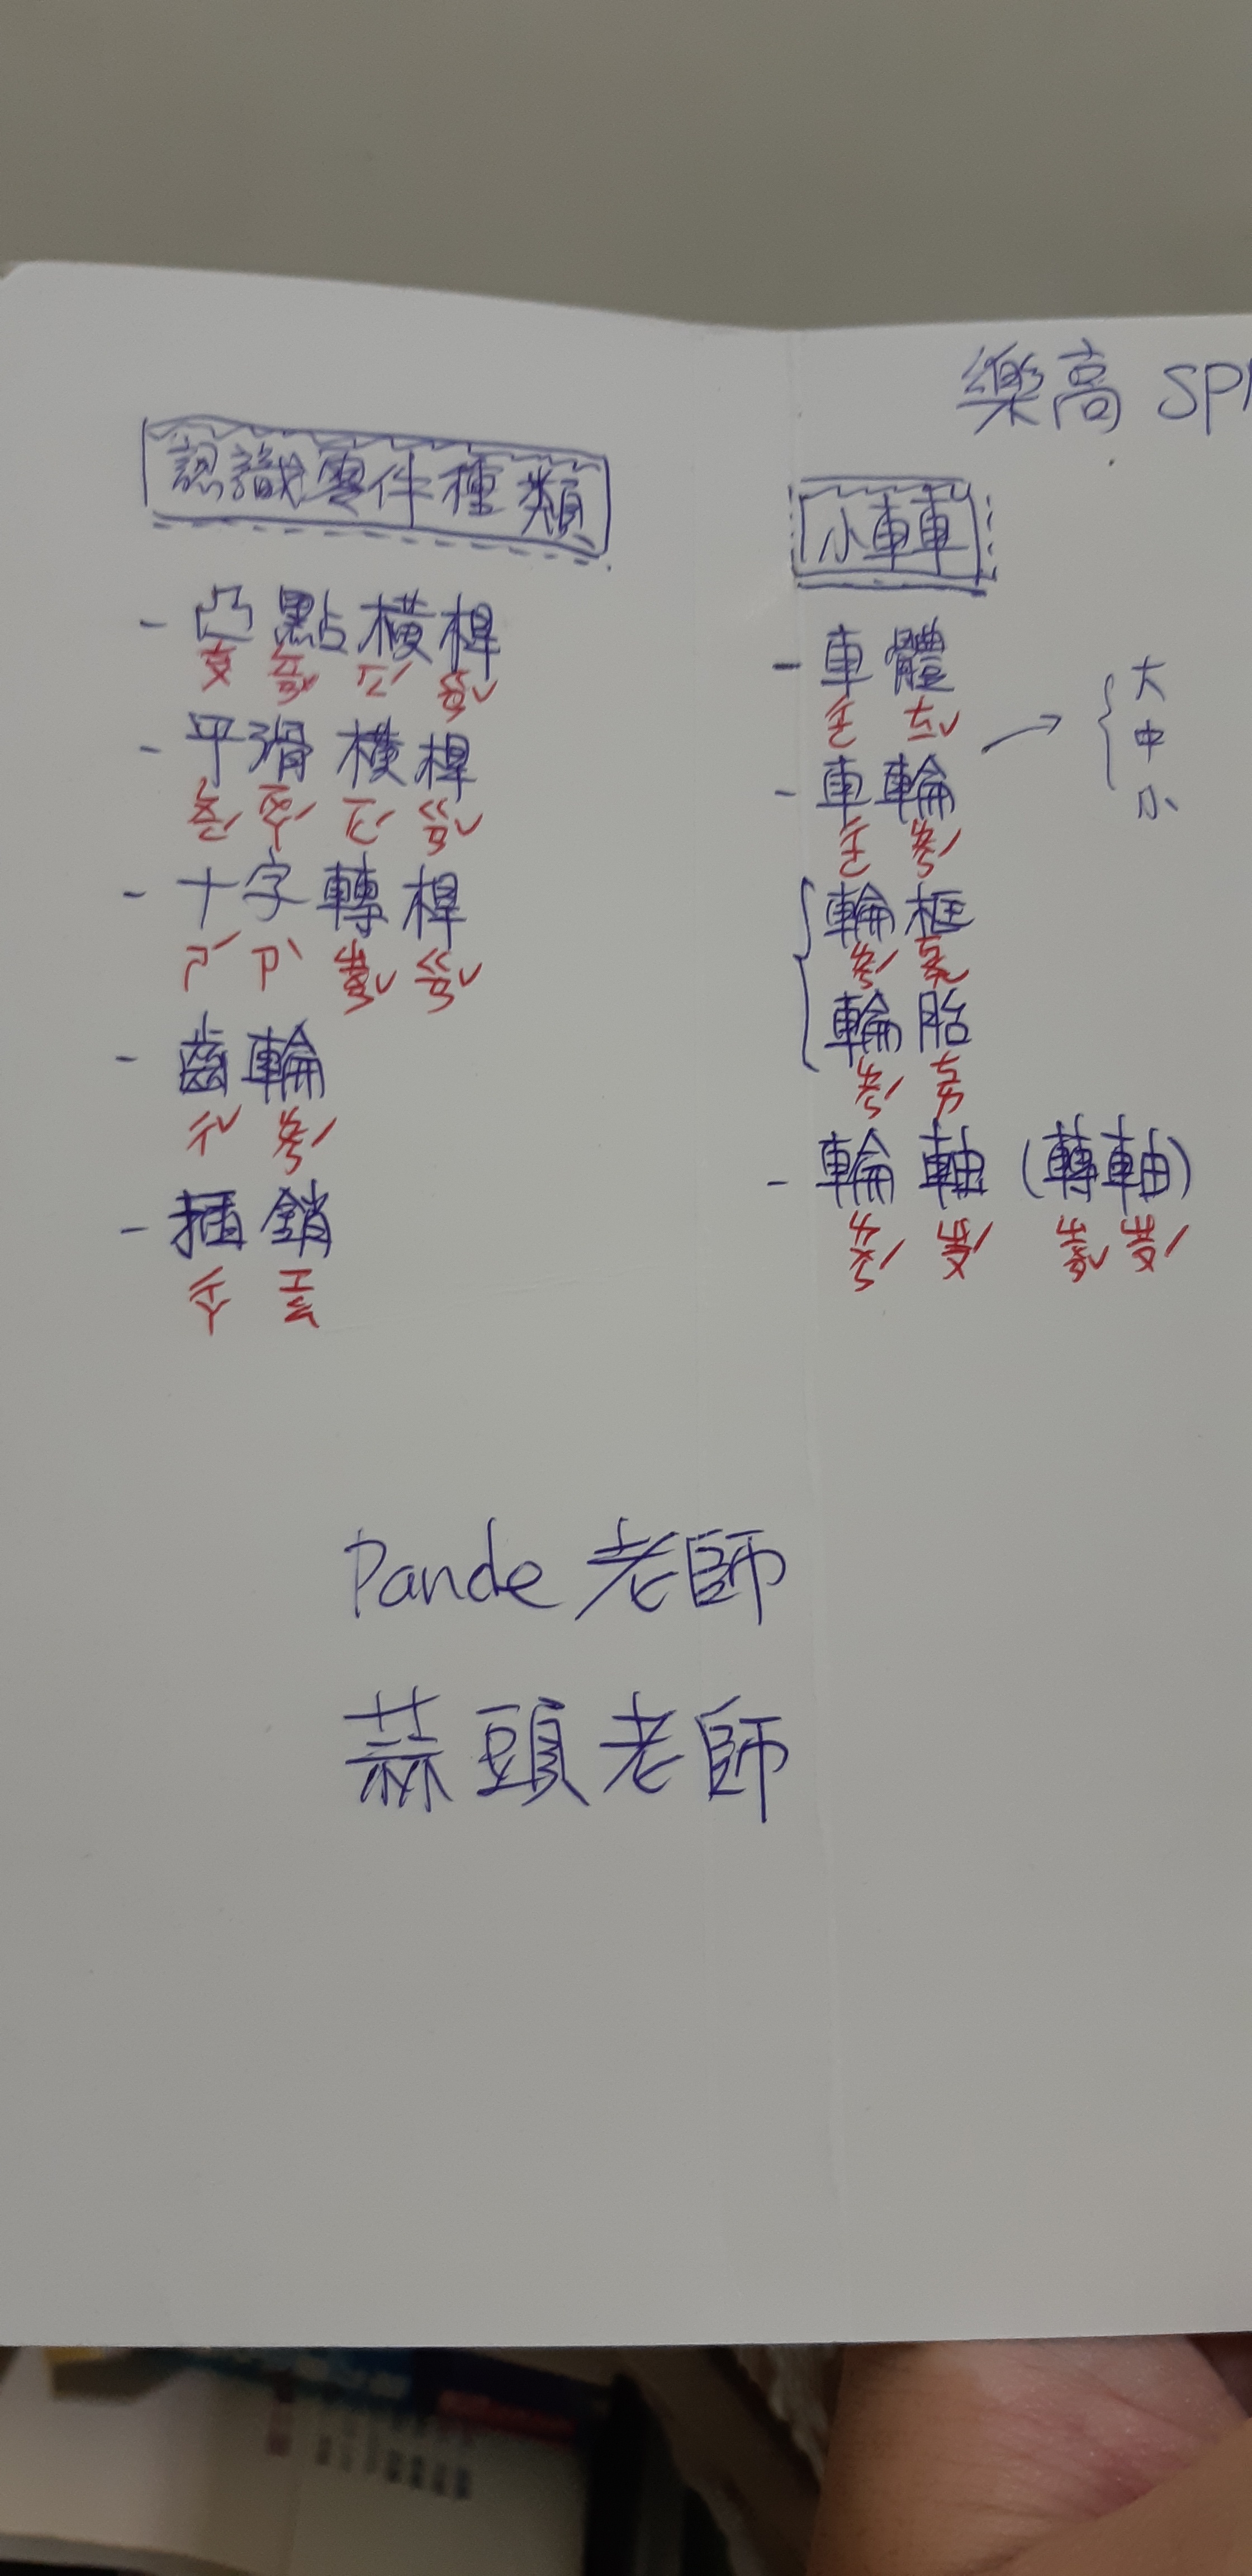 樂高 SP
認識零件種類
- 凸點橫桿
ㄊㄨ ㄉㄧㄢˇ ㄏㄥˊ ㄍㄢˇ
- 平滑橫桿
ㄆㄧㄥˊ ㄏㄨㄚˊ ㄏㄥˊ ㄍㄢˇ
- 十字轉桿
ㄕˊ ㄗˋ ㄓㄨㄢˇ ㄍㄢˇ
- 齒輪
ㄔˇ ㄌㄨㄣˊ
- 插銷
ㄔㄚ ㄒㄧㄠ
小車車
- 車體
ㄔㄜ ㄊㄧˇ
- 車輪 → { 大
中
小
ㄔㄜ ㄌㄨㄣˊ
{ 輪框
ㄌㄨㄣˊ ㄎㄨㄤ
輪胎
ㄌㄨㄣˊ ㄊㄞ
- 輪軸 (轉軸)
ㄌㄨㄣˊ ㄓㄡˊ ㄓㄨㄢˇ ㄓㄡˊ
Pande 老師
蒜頭老師